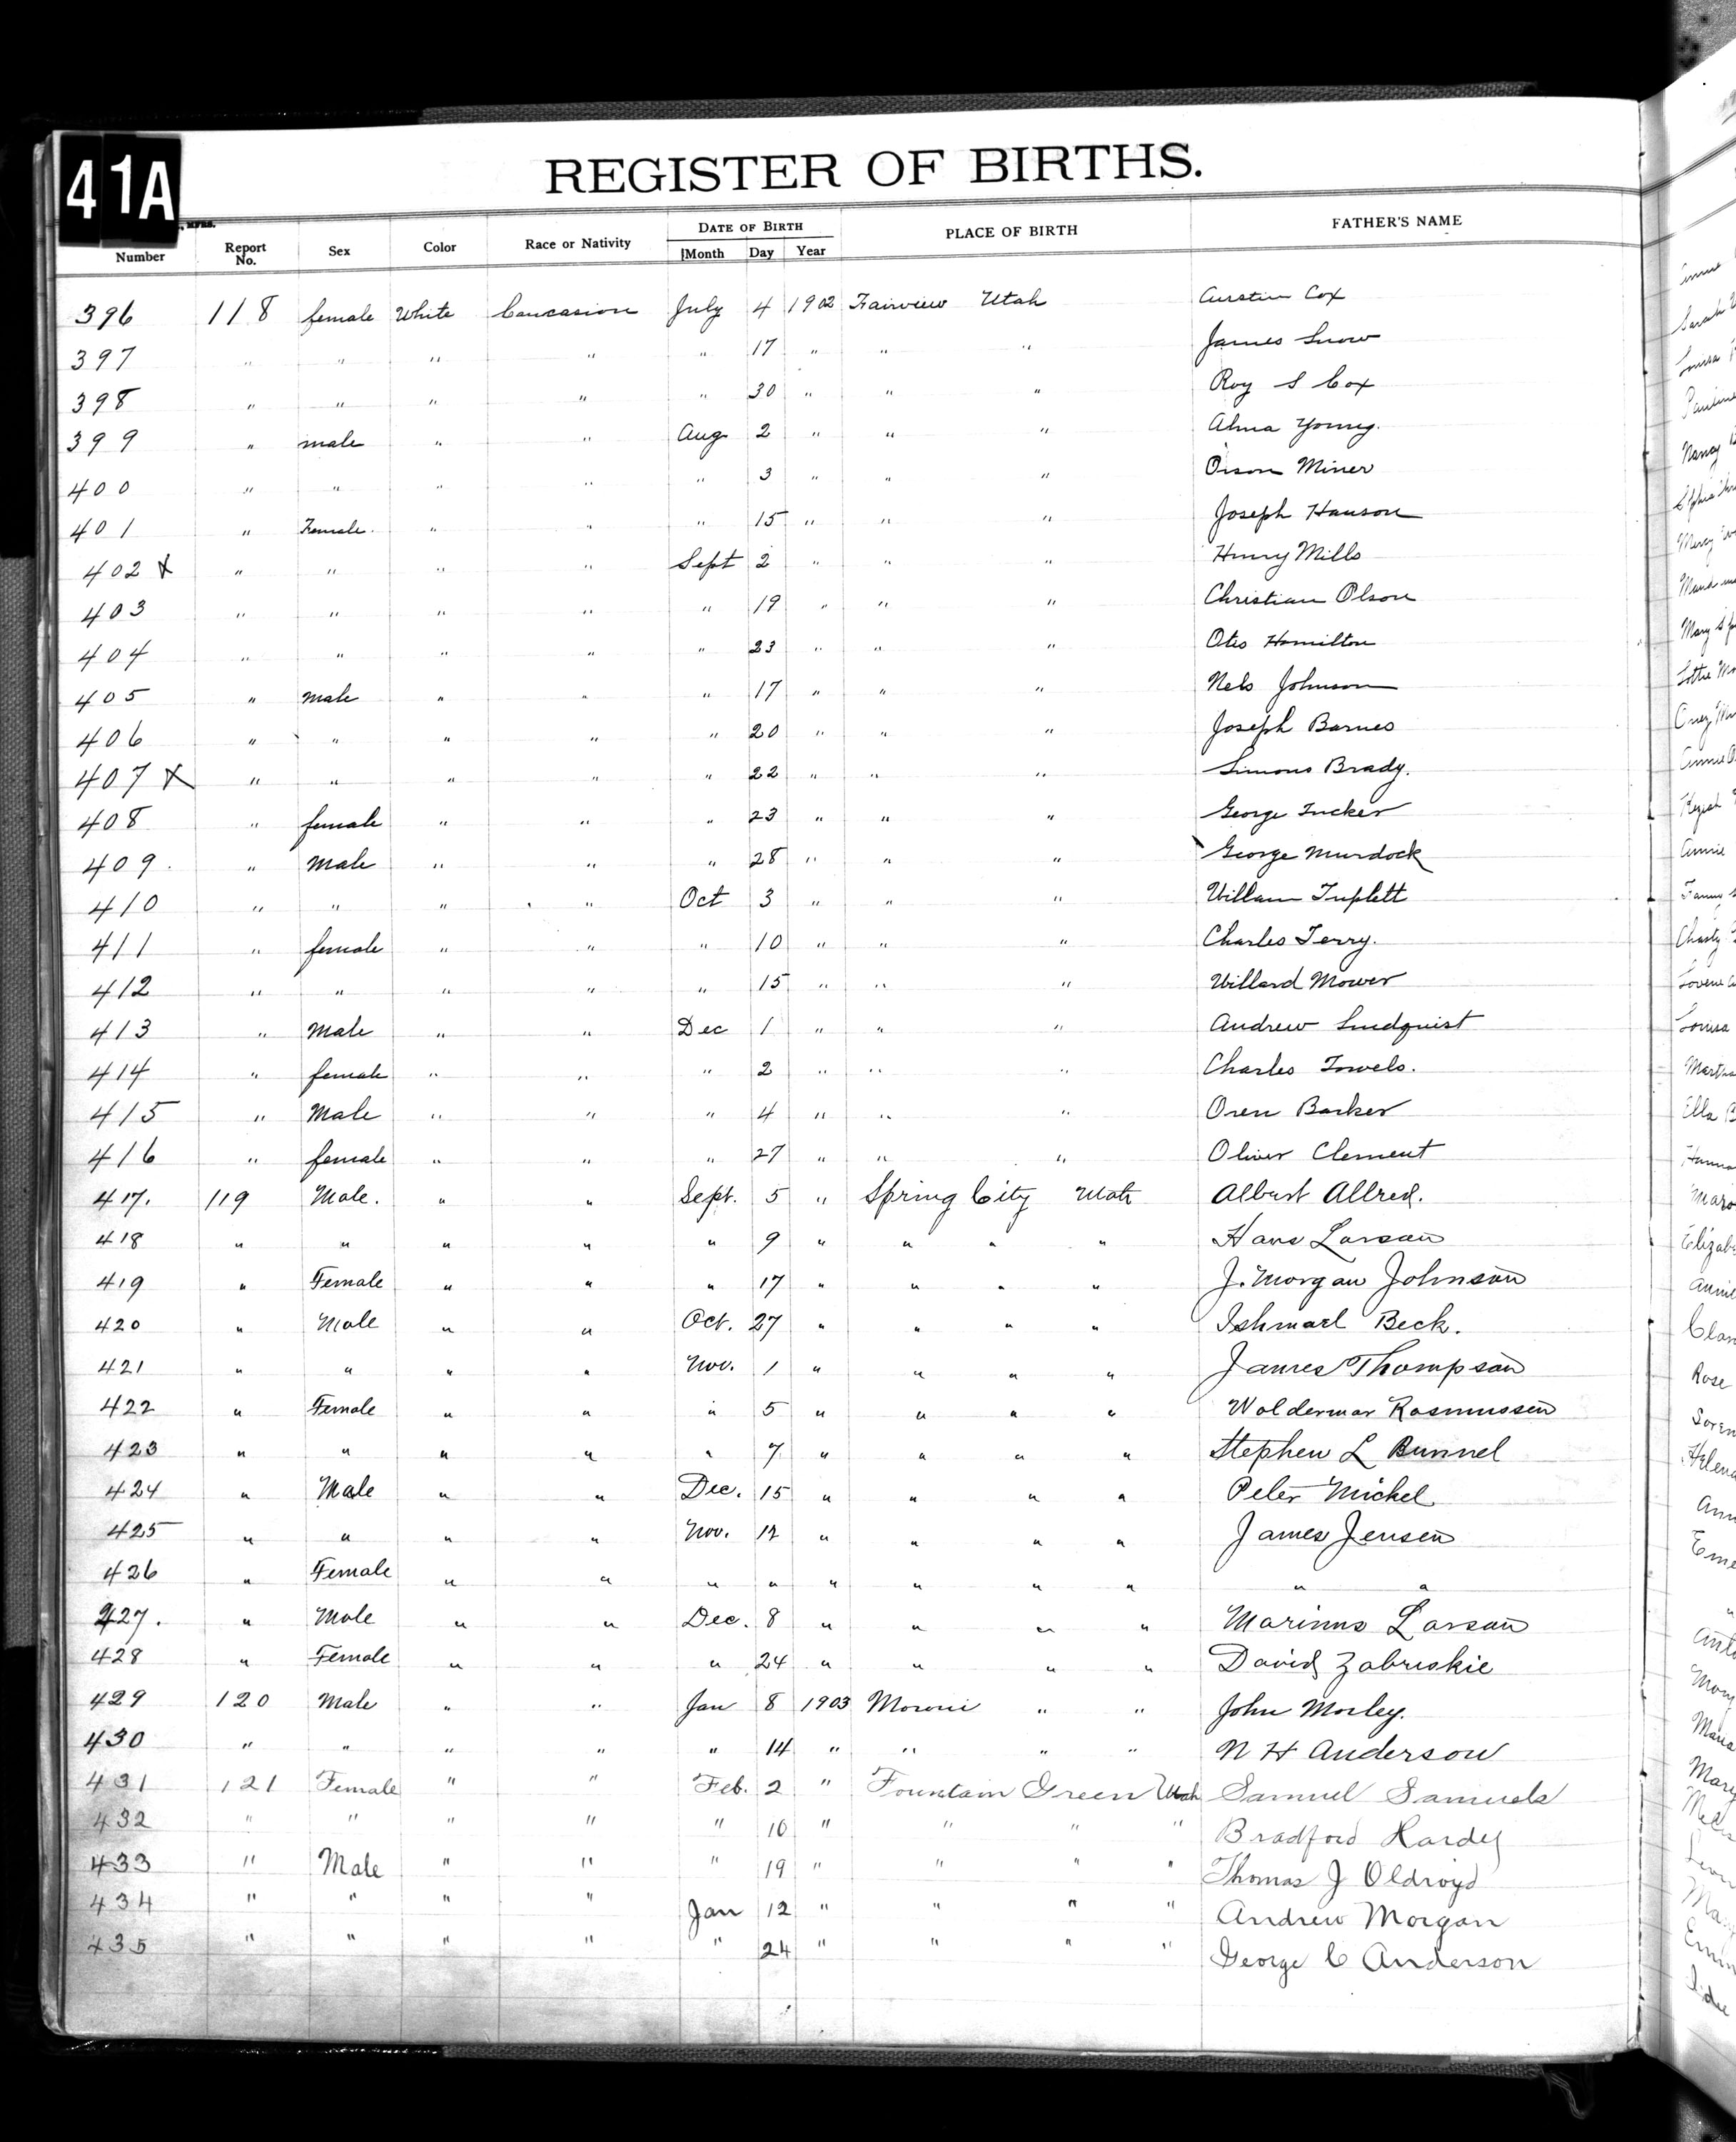 41A
REGISTER OF BIRTHS.
, MFRS.
Number Report No. Sex Color Race or Nativity DATE OF BIRTH Month Day Year PLACE OF BIRTH FATHER'S NAME
396 118 female White Caucasion July 4 1902 Fairview Utah Austin Cox
397 " " " " " 17 " " " James Snow
398 " " " " " 30 " " " Roy S Cox
399 " male " " Aug 2 " " " Alma Young.
400 " " " " " 3 " " " Orson Miner
401 " Female. " " " 15 " " " Joseph Hanson
402 X " " " " Sept 2 " " " Henry Mills
403 " " " " " 19 " " " Christian Olson
404 " " " " " 23 " " " Otis Hamilton
405 " male " " " 17 " " " Nels Johnson
406 " " " " " 20 " " " Joseph Barnes
407 X " " " " " 22 " " " Simons Brady.
408 " female " " " 23 " " " George Tucker
409. " Male " " " 28 " " " George Murdock
410 " " " " Oct 3 " " " William Triplett
411 " female " " " 10 " " " Charles Terry.
412 " " " " " 15 " " " Willard Mower
413 " Male " " Dec 1 " " " Andrew Lindquist
414 " female " " " 2 " " " Charles Towels.
415 " Male " " " 4 " " " Oren Barker
416 " female " " " 27 " " " Oliver Clement
417. 119 Male. " " Sept. 5 " Spring City Utah Albert Allred.
418 " " " " " 9 " " " " Hans Larsan
419 " Female " " " 17 " " " " J. Morgan Johnson
420 " Male " " Oct. 27 " " " " Ishmael Beck.
421 " " " " Nov. 1 " " " " James Thompson
422 " Female " " " 5 " " " " Woldermar Rasmussen
423 " " " " " 7 " " " " Stephen L Bunnel
424 " Male " " Dec. 15 " " " " Peter Mickel
425 " " " " Nov. 12 " " " " James Jensen
426 " Female " " " " " " " " " "
427. " Male " " Dec. 8 " " " " Marinus Larsan
428 " Female " " " 24 " " " " David Zabriskie
429 120 Male " " Jan 8 1903 Moroni " " John Morley.
430 " " " " " 14 " " " " N H Anderson
431 121 Female " " Feb. 2 " Fountain Green Utah Samuel Samuels
432 " " " " " 16 " " " " Bradford Hardy
433 " Male " " " 19 " " " " Thomas J Oldroyd
434 " " " " Jan 12 " " " " Andrew Morgan
435 " " " " " 24 " " " " George C Anderson